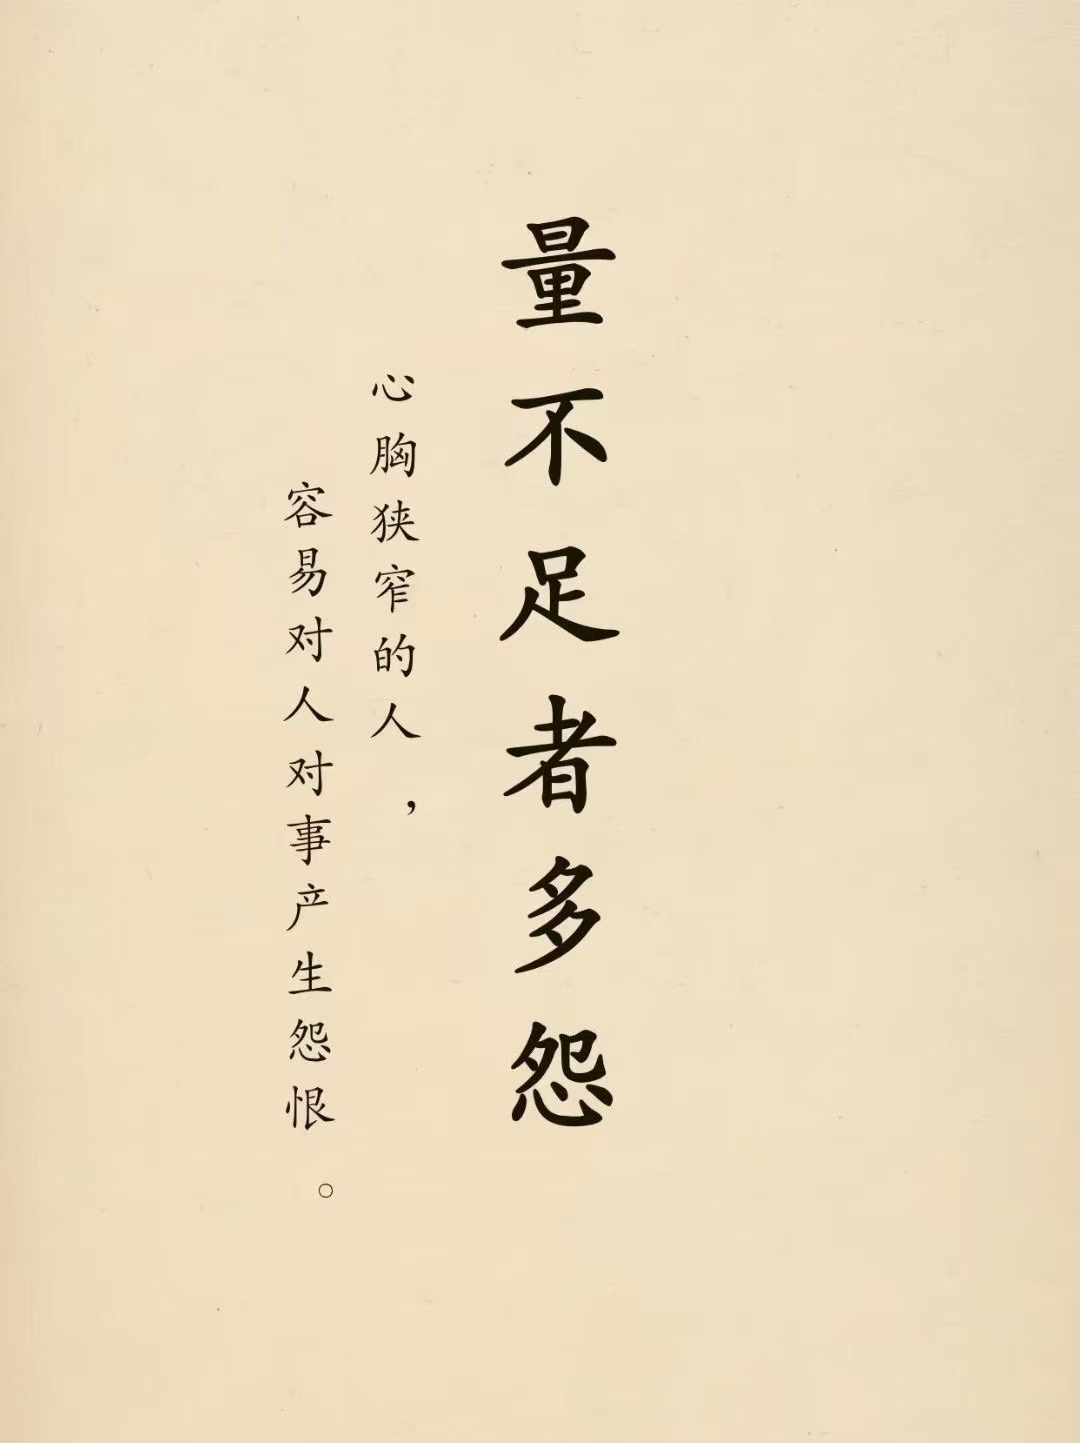 量不足者多怨
心胸狭窄的人，
容易对人对事产生怨恨。